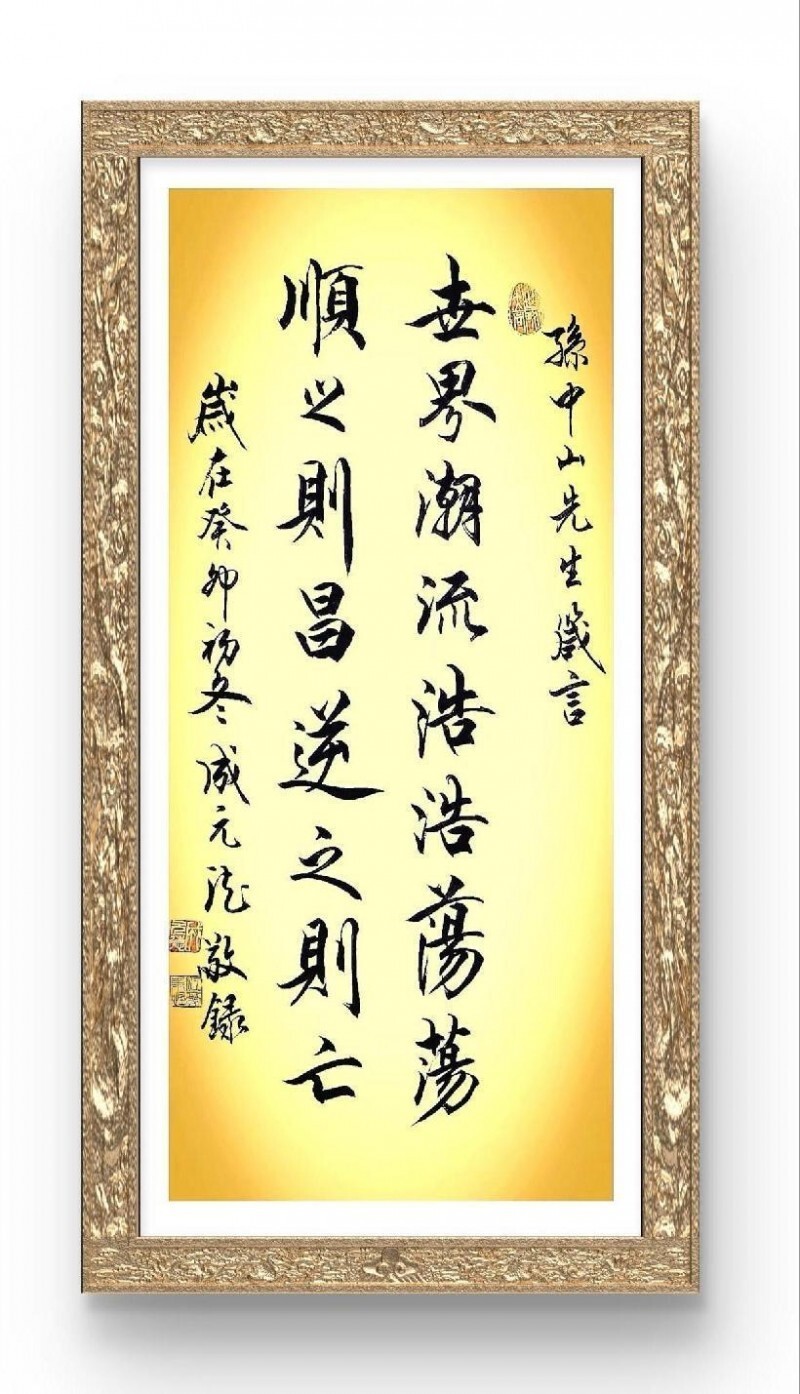 孫中山先生箴言
世界潮流浩浩蕩蕩
順之則昌逆之則亡
歲在癸卯初冬成元法敬録